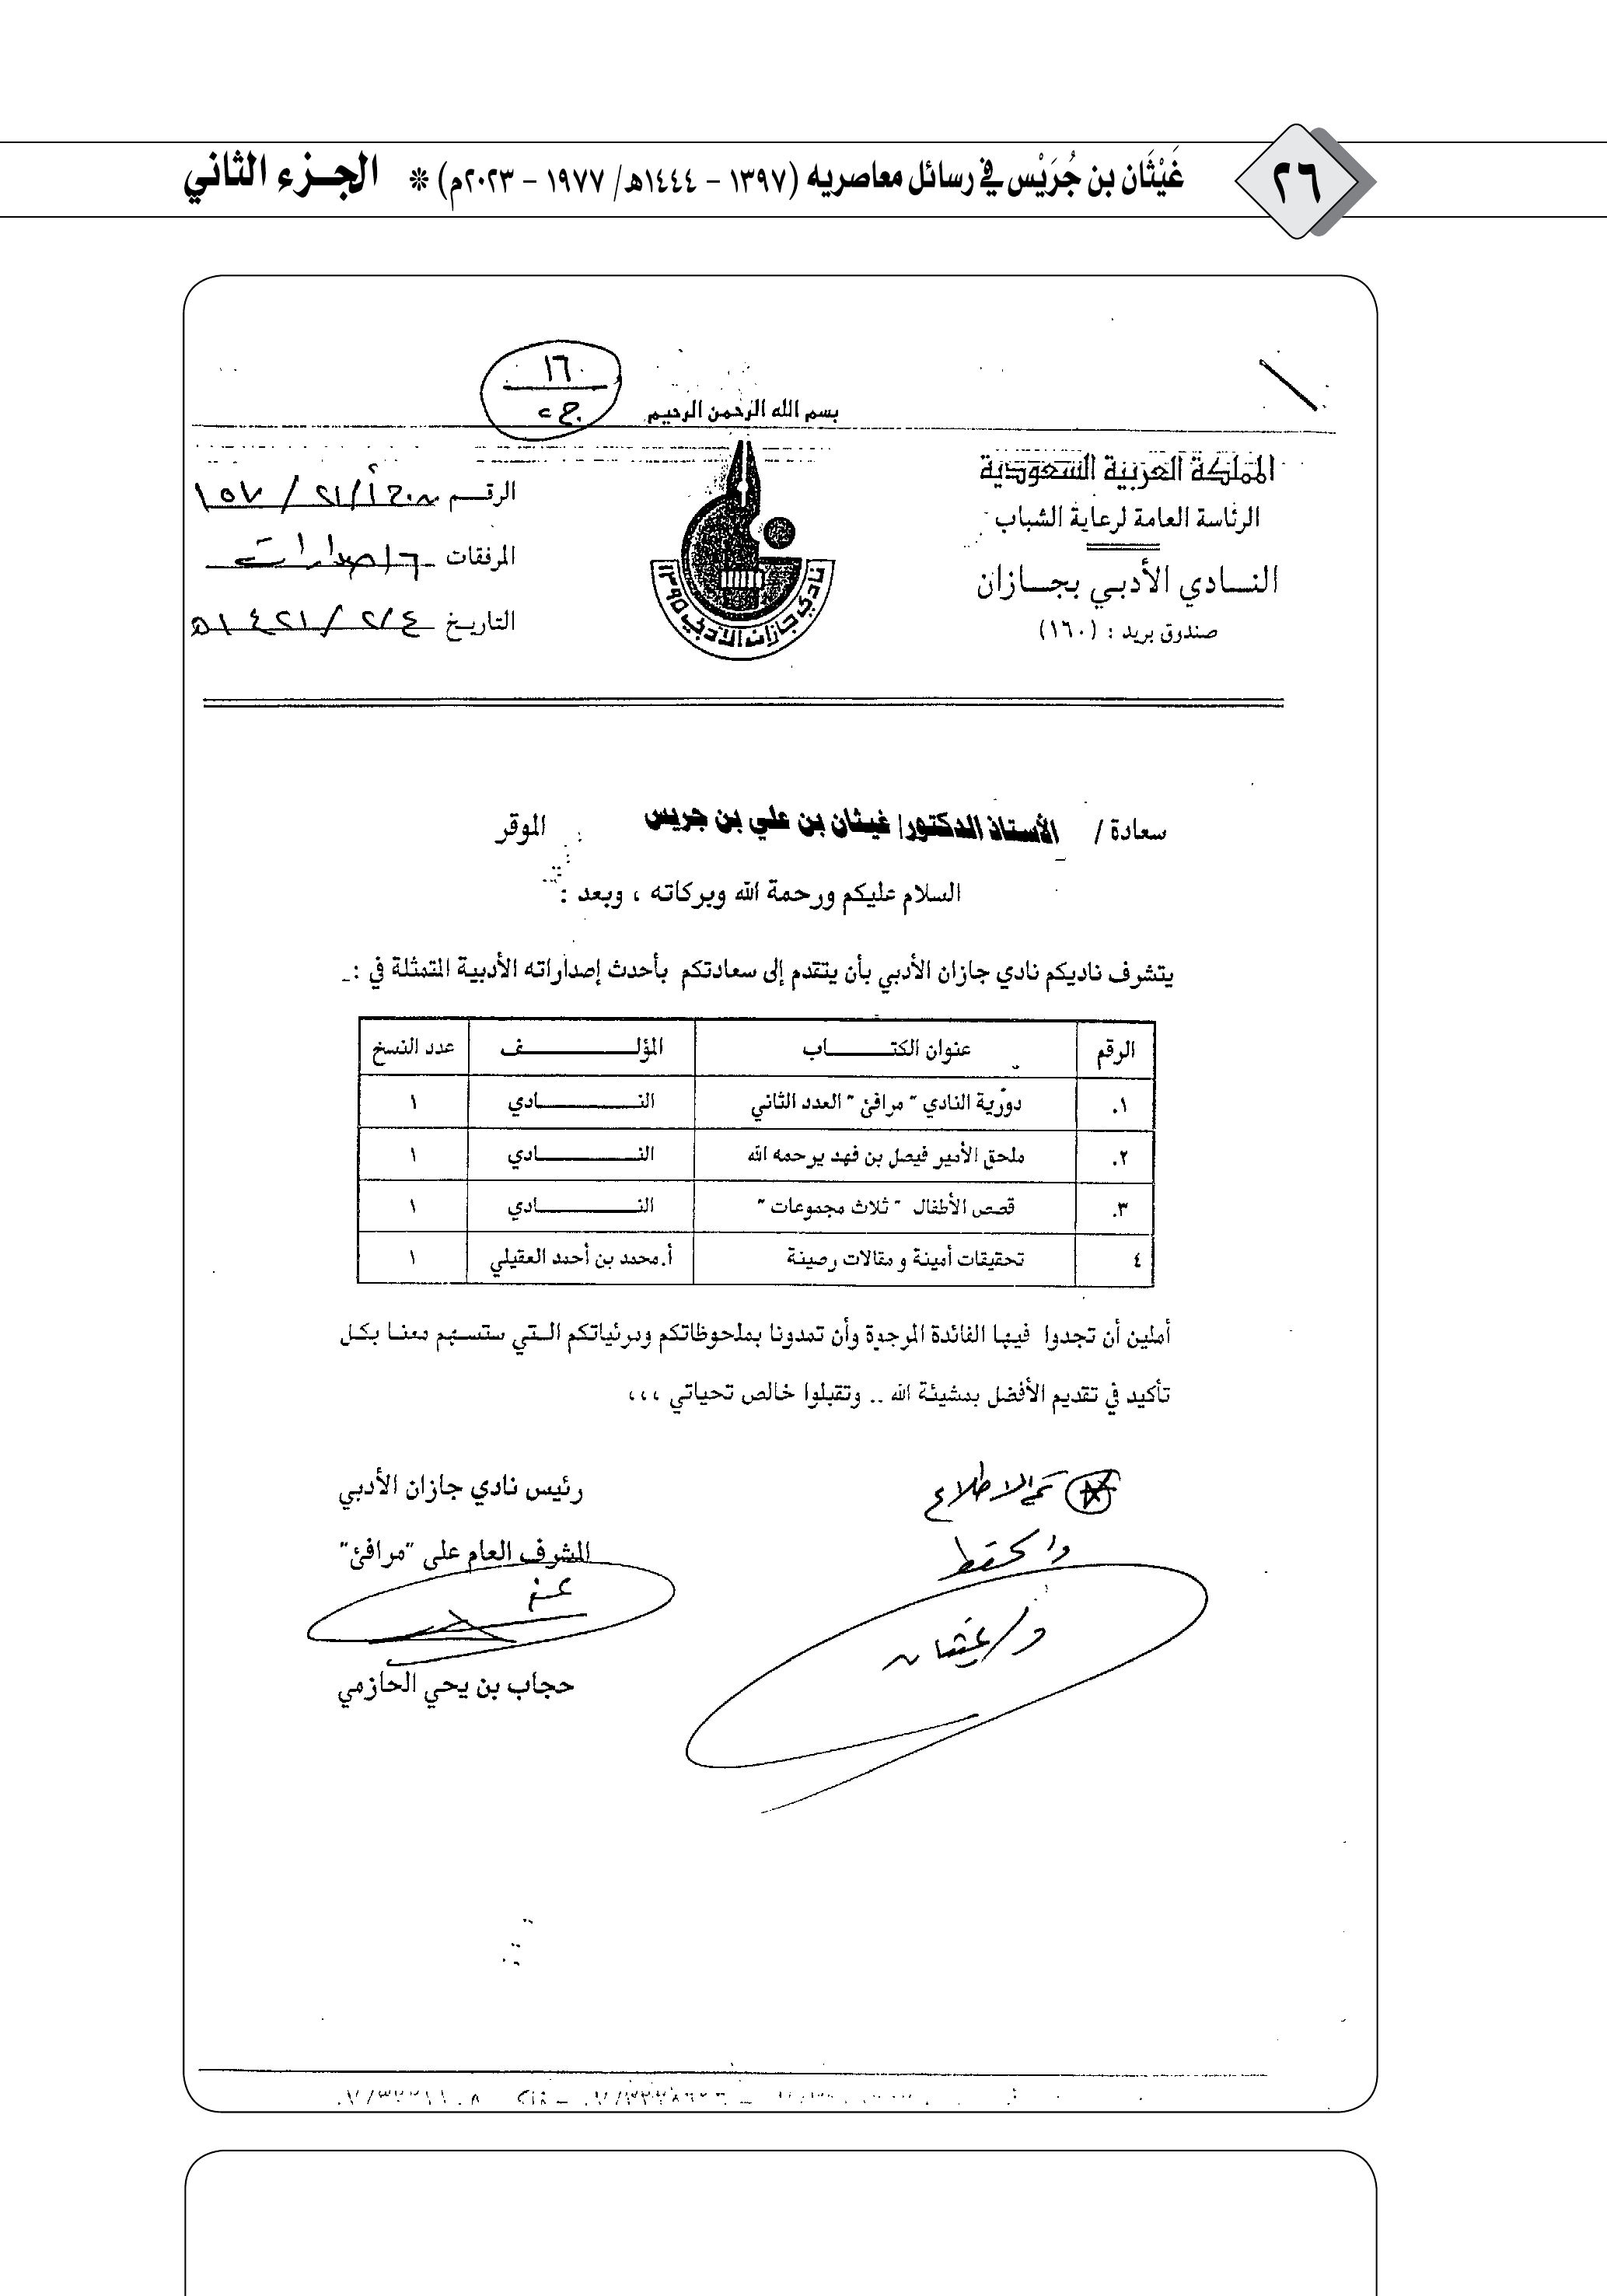 ٢٦
غَيْثَان بن جُرَيْس في رسائل معاصريه (١٣٩٧ - ١٤٤٤هـ/ ١٩٧٧ - ٢٠٢٣م) * الجـزء الثاني
١٦
ج٢
بسم الله الرحمن الرحيم
المملكة العربية السعودية
الرئاسة العامة لرعاية الشباب
النـادي الأدبـي بجـازان
صندوق بريد : (١٦٠)
الرقـم
المرفقات ٦ إصدارات
التاريـخ ٢/٤ / ١٤٢١هـ
نادي جازان الأدبي ١٣٩٥
سعادة / الأستاذ الدكتور/ غيثان بن علي بن جريس الموقر
السلام عليكم ورحمة الله وبركاته ، وبعد :
يتشرف ناديكم نادي جازان الأدبي بأن يتقدم إلى سعادتكم بأحدث إصداراته الأدبية المتمثلة في :_
الرقم عنوان الكتـــاب المؤلـــــف عدد النسخ
١. دورية النادي " مرافئ " العدد الثاني النـــــادي ١
٢. ملحق الأمير فيصل بن فهد يرحمه الله النـــــادي ١
٣. قصص الأطفال " ثلاث مجموعات " النـــــادي ١
٤ تحقيقات أمينة و مقالات رصينة أ.محمد بن أحمد العقيلي ١
أملين أن تجدوا فيها الفائدة المرجوة وأن تمدونا بملحوظاتكم ومرئياتكم الـتي ستسـهم معنـا بكـل
تأكيد في تقديم الأفضل بمشيئة الله .. وتقبلوا خالص تحياتي ،،،
تم الاطلاع
والحفظ
د/ غيثان
رئيس نادي جازان الأدبي
المشرف العام على "مرافئ"
حجاب بن يحي الحازمي